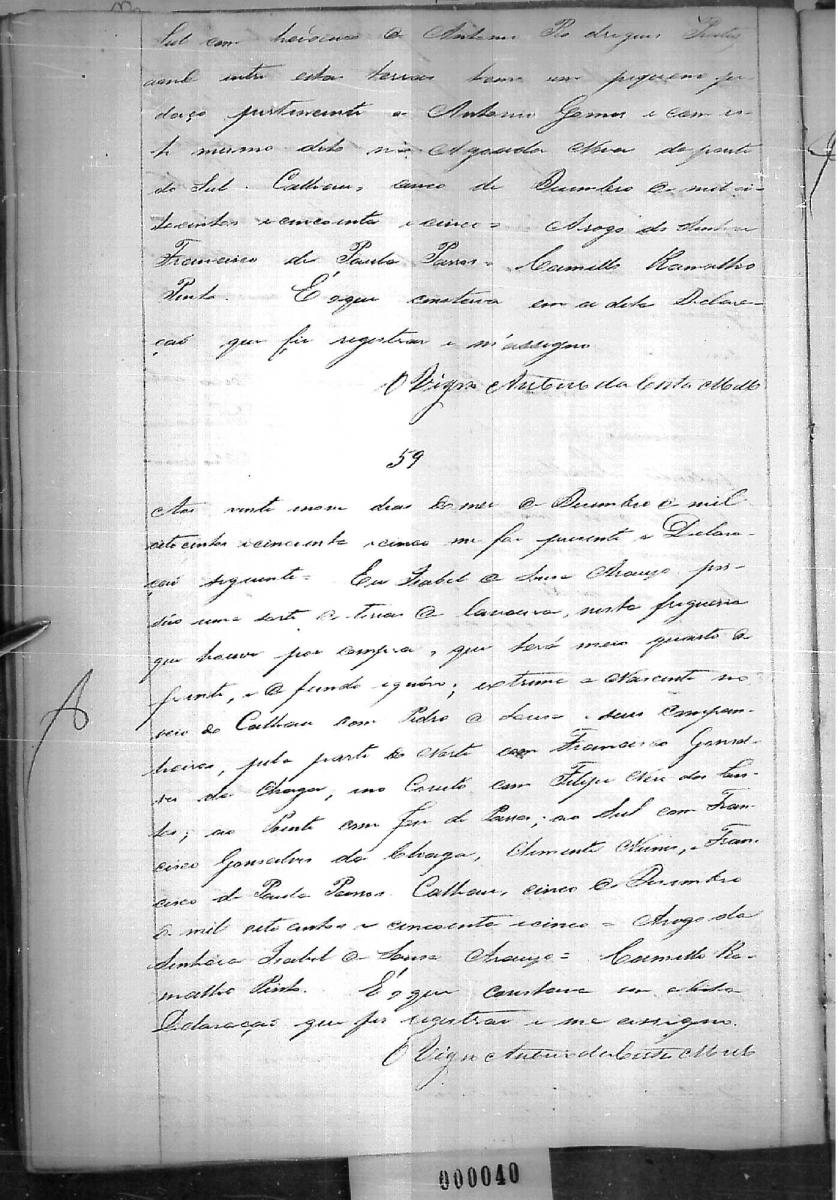 Sul com herdeiros de Antonio Rodrigues
entre estas terras tem um pequeno pe-
daço pertencente a Antonio Gomes e com es-
te mesmo dito na Aguada Nova da parte
do Sul. Calhau, cinco de Dezembro de mil oi-
tocentos e cincoenta e cinco = Arogo do Senhor
Francisco de Paula Passos = Camillo Ramalho
Pinto. É o que constava em a dita Declara-
çaõ que fiz registrar e m'assigno
O Vigrº Antero da Costa Mello
59
Aos vinte nove dias do mez de Dezembro de mil
oitocentos e cincoenta e cinco me foi presente a Declara-
çaõ seguinte = Eu Isabel de Sousa Araujo pos-
suo uma sorte de terras de lavoura, nesta freguesia
que houve por compra, que terá meio quarto de
frente, e de fundo igual; extrema a Nascente no
veio do Calhau com Pedro de Sousa e seus compan-
heiros, pela parte do Norte com Francisco Gonsal-
ves da Chaga, no com Felipe Neri dos San-
tos; ao Poente com de Passos; ao Sul com Fran-
cisco Gonsalves da Chaga, Clemente Nunes, e Fran-
cisco de Paula Passos. Calhau, cinco de Dezembro
de mil oitocentos e cincoenta e cinco = Arogo da
Senhora Isabel de Sousa Araujo = Camillo Ra-
malho Pinto. É o que constava em a dita
Declaraçaõ que fiz registrar e me assigno.
O Vigrº Antero da Costa Mello
000040